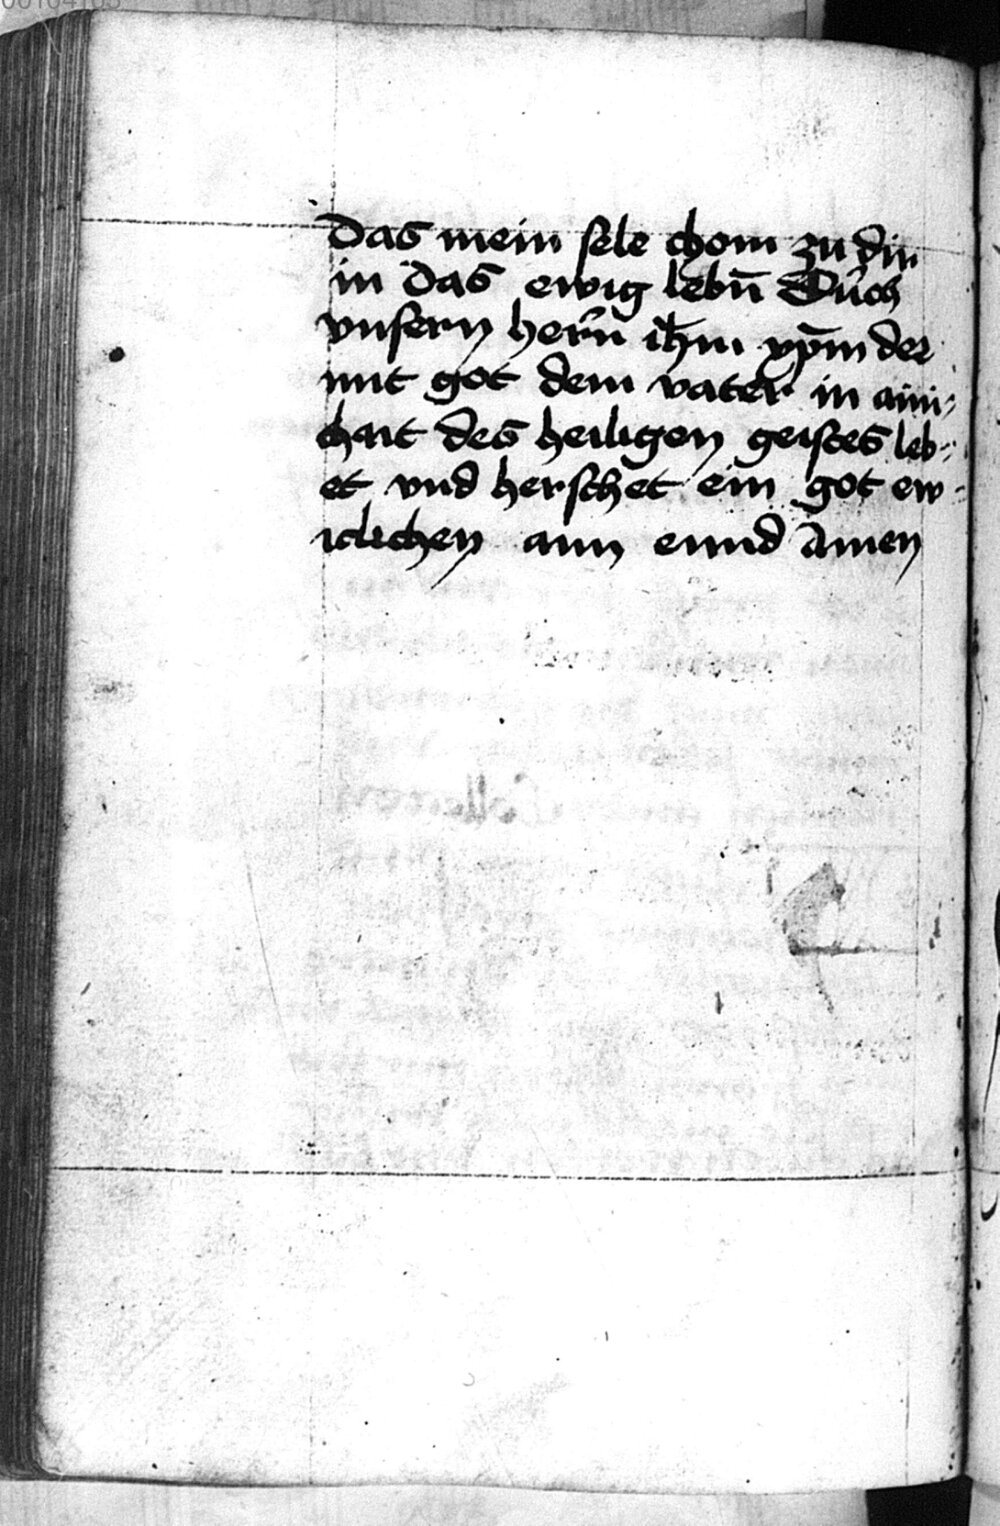 00104103
Das mein sele chom zu dir
in das ewig lebn̄ Durch
vnsern hern̄ ih̄m xp̄m der
mit got dem vater in aini-
chait des heiligen geistes leb-
et vnd herschet ein got ew-
iclichen ann ennd Amen